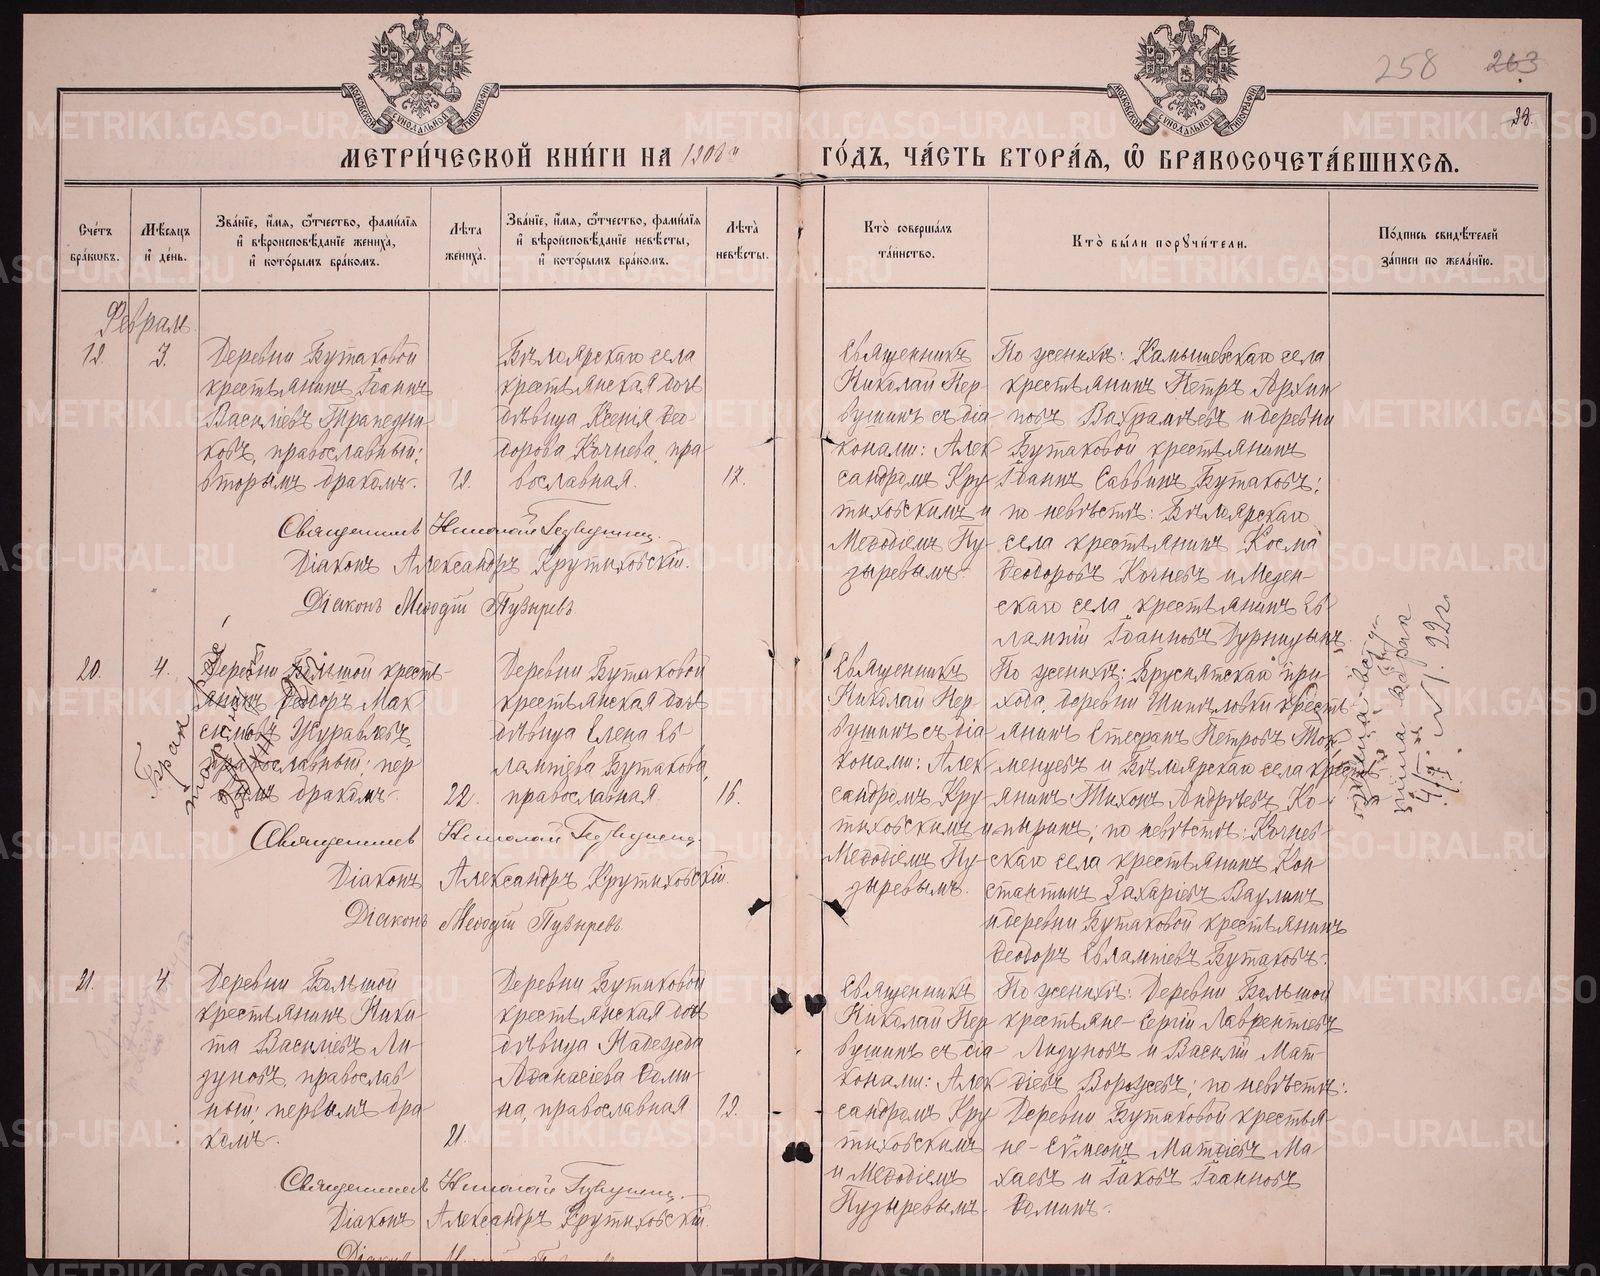 258 263
МОСКОВСКОЙ СѴНОДАЛЬНОЙ ТИПОГРАФІИ
МОСКОВСКОЙ СѴНОДАЛЬНОЙ ТИПОГРАФІИ
МЕТРИ́ЧЕСКОЙ КНИ́ГИ НА
ГО́ДЪ, ЧА́СТЬ ВТОРА́Ѧ, Ѿ БРАКОСОЧЕТА́ВШИХСѦ.
Сче́тъ бра́кѡвъ.
Мѣ́сѧцъ и҆ де́нь.
Зва́нїе, и҆́мѧ, ѻ҆́тчество, фами́лїѧ и҆ вѣроисповѣ́данїе жениха̀, и҆ кото́рымъ бра́комъ.
Лѣ́та жениха̀.
Зва́нїе, и҆́мѧ, ѻ҆́тчество, фами́лїѧ и҆ вѣроисповѣ́данїе невѣ́сты, и҆ кото́рымъ бра́комъ.
Лѣ́та невѣ́сты.
Кто̀ соверша́лъ та́инство.
Кто̀ бы́ли порꙋчи́тели.
По́дпись свидѣ́телей за́писи по жела́нїю.
Февраль
3.
Деревни Бутаковой
крестьянинъ Іоаннъ
Василіевъ Трапезни-
ковъ, православный;
вторымъ бракомъ.
Бѣлоярскаго села
крестьянская дочь
дѣвица Ксенія Ѳео-
дорова Кочнева, пра-
вославная.
17.
Священникъ
Николай Пер-
вушинъ съ діа-
конами: Алек-
сандромъ Кру-
тиховскимъ и
Меѳодіемъ Пу-
зыревымъ.
По женихѣ: Камышевскаго села
крестьянинъ Петръ Архип-
повъ Вахрамѣевъ и деревни
Бутаковой крестьянинъ
Іоаннъ Саввинъ Бутаковъ;
по невѣстѣ: Бѣлоярскаго
села крестьянинъ Косма
Ѳеодоровъ Кочневъ и Мезен-
скаго села крестьянинъ Ев-
лампій Іоанновъ
Священникъ Николай Первушинъ.
Діаконъ Александръ Крутиховскій.
Діаконъ Меѳодій Пузыревъ
20.
4.
Деревни Большой кресть-
янинъ Ѳеодоръ Мак-
симовъ Журавлевъ,
православный; пер-
вымъ бракомъ.
22.
Деревни Бутаковой
крестьянская дочь
дѣвица Елена Ев-
лампіева Бутакова,
православная
16.
Священникъ
Николай Пер-
вушинъ съ діа-
конами: Алек-
сандромъ Кру-
тиховскимъ и
Меѳодіемъ Пу-
зыревымъ.
По женихѣ: Бруснятскаго при-
хода, деревни Шипѣловки кресть-
янинъ Стефанъ Петровъ Ток-
менцевъ и Бѣлоярскаго села кресть-
янинъ Тихонъ Андреевъ Ко-
пыринъ; по невѣстѣ: Кочнев-
скаго села крестьянинъ Кон-
стантинъ Захаріевъ Ваулинъ
и деревни Бутаковой крестьянинъ
Ѳеодоръ Евлампіевъ Бутаковъ.
Бракъ
22 г.
Священникъ Николай Первушинъ.
Діаконъ Александръ Крутиховскій.
Діаконъ Меѳодій Пузыревъ
21.
4.
Деревни Большой
крестьянинъ Ники-
та Василіевъ Ли-
дуновъ, православ-
ный; первымъ бра-
комъ.
21.
Деревни Бутаковой
крестьянская дочь
дѣвица Надежда
Аѳанасіева Ѳоми-
на, православная
Священникъ
Николай Пер-
вушинъ съ діа-
конами: Алек-
сандромъ Кру-
тиховскимъ
и Меѳодіемъ
Пузыревымъ.
По женихѣ: Деревни Большой
крестьяне - Сергій Лаврентіевъ
Лидуновъ и Василій Мат-
ѳіевъ Ворожевъ; по невѣстѣ:
Деревни Бутаковой крестья-
не - Сѵмеонъ Матѳіевъ Ма-
хаевъ и Іаковъ Іоанновъ
Ѳоминъ.
Священникъ Николай Первушинъ.
Діаконъ Александръ Крутиховскій.
Діаконъ
METRIKI.GASO-URAL.RU